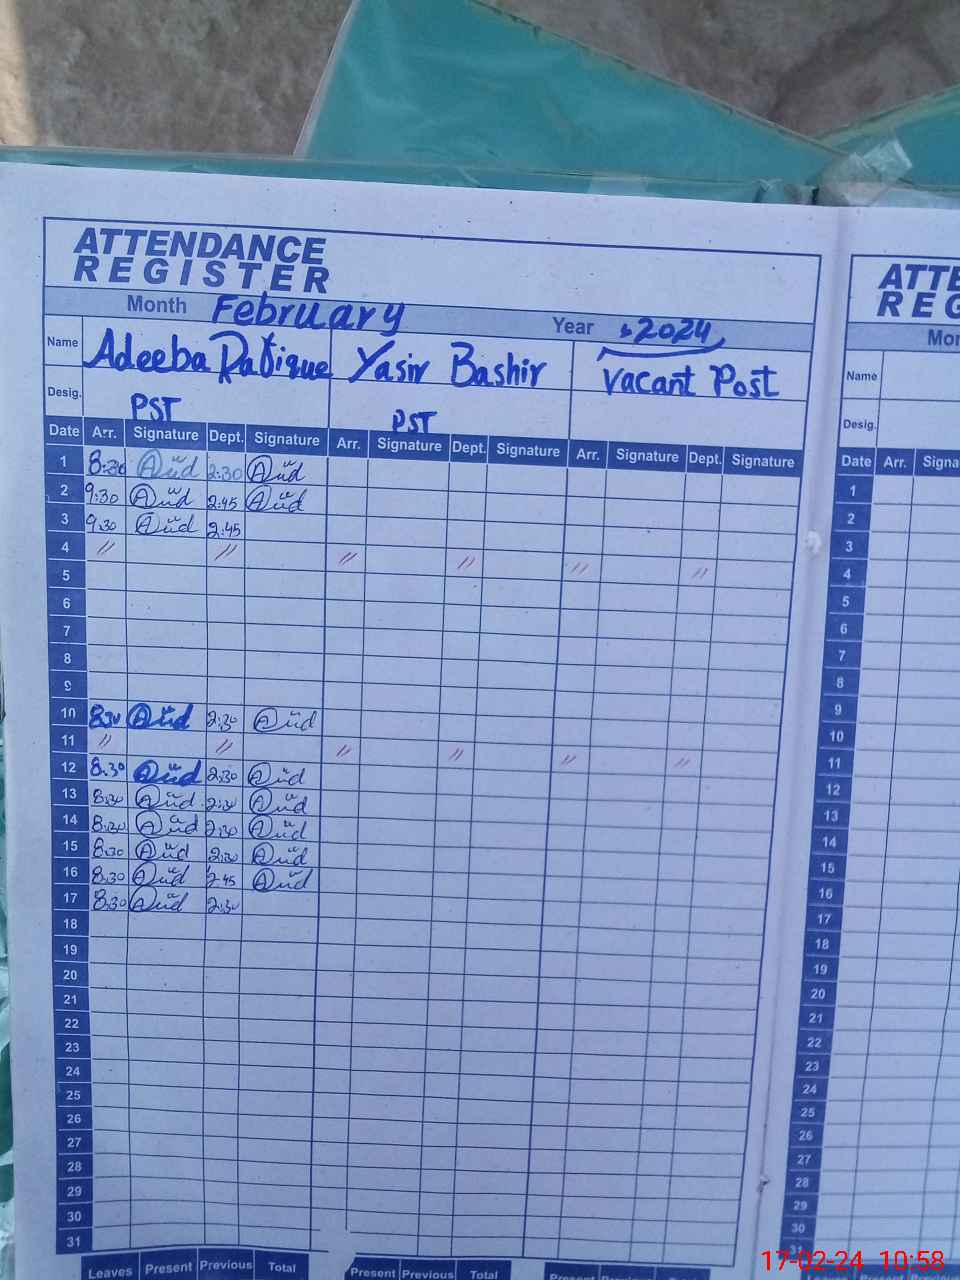 ATTENDANCE ATTE
REGISTER REG
Month February Year 2024 Mon
Name Adeeba Rafique Yasir Bashir Vacant Post Name
Desig. PST PST Desig.
Date Arr. Signature Dept. Signature Arr. Signature Dept. Signature Arr. Signature Dept. Signature Date Arr. Signa
1 8:30 2:30 1
2 9:30 2:45 2
3 9:30 2:45 3
4 // // // // // // 4
5 5
6 6
7 7
8 8
9 9
10 8:30 2:30 10
11 // // // // // // 11
12 8:30 2:30 12
13 8:30 2:30 13
14 8:30 2:30 14
15 8:30 2:30 15
16 8:30 2:45 16
17 8:30 2:30 17
18 18
19 19
20 20
21 21
22 22
23 23
24 24
25 25
26 26
27 27
28 28
29 29
30 30
31 31
Leaves Present Previous Total Present Previous Total Present Previous Total
17-02-24 10:58